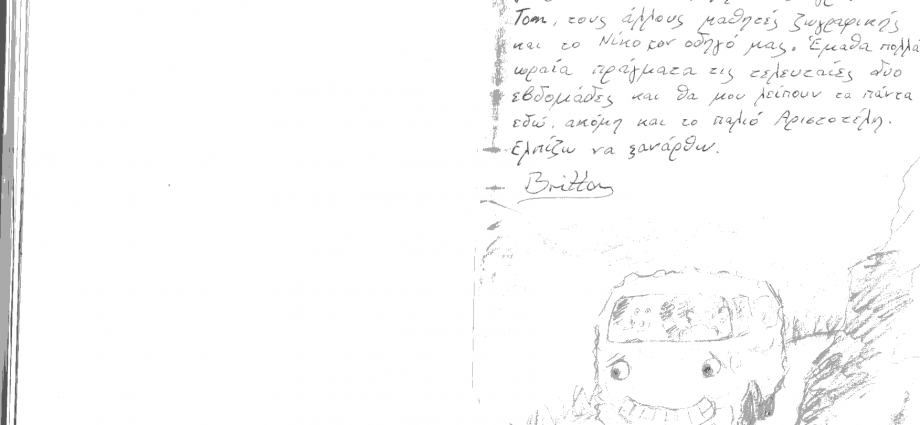 Tom, τους άλλους μαθητές ζωγραφικής
και το Νίκο τον οδηγό μας. Έμαθα πολλά
ωραία πράγματα τις τελευταίες δυο
εβδομάδες και θα μου λείπουν τα πάντα
εδώ, ακόμη και το παλιό Αριστοτέλη.
Ελπίζω να ξανάρθω.
Britton